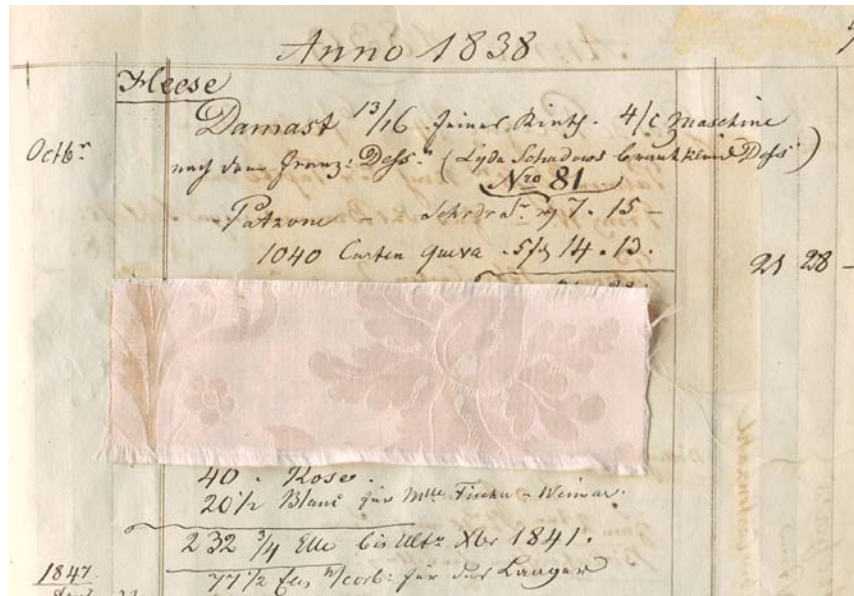 Anno 1838
Heese
Octbr. Damast 13/16 4/c Maschine
nach dem Franz: Dess. (Lyda Schadows Brautkleid Dess)
Nro 81
Patrone - 7. 15 -
1040 Carten 14. 13.
21 28 -
40. Rose.
20 1/2 Blanc für Mlle Fischer Weimar.
232 3/4 Elle bis ultz Xbr 1841.
1847
77 1/2 für das Laager